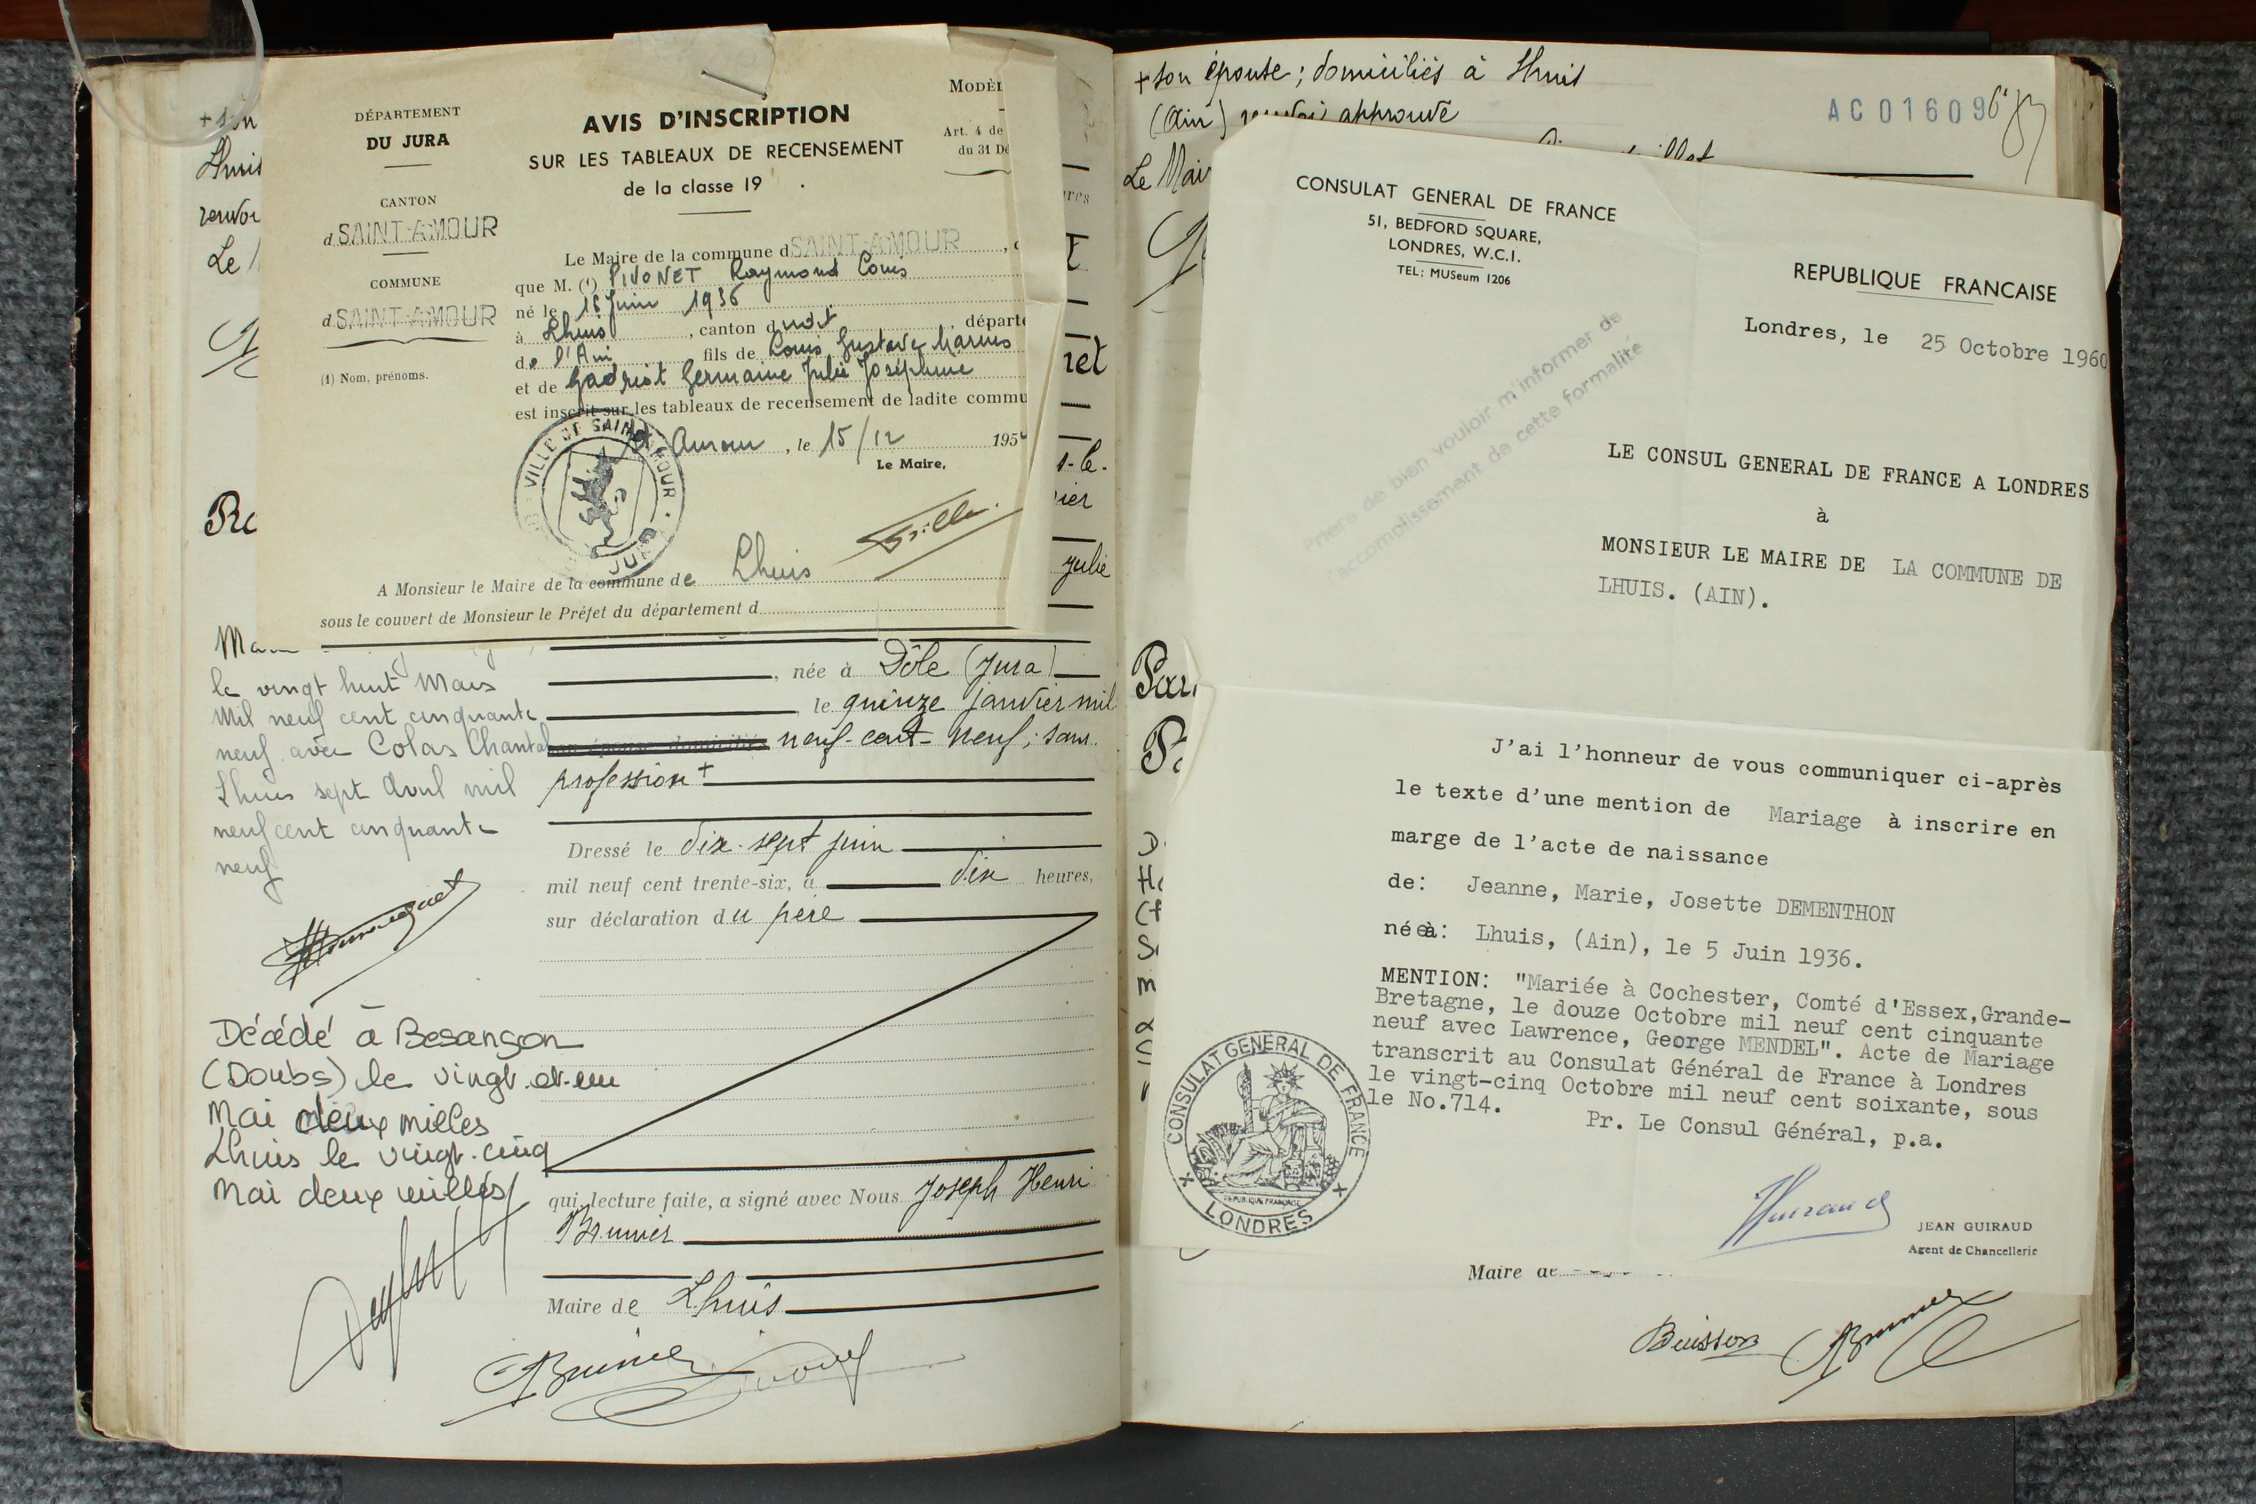 DÉPARTEMENT
DU JURA
CANTON
d SAINT-AMOUR
COMMUNE
d SAINT-AMOUR
(1) Nom, prénoms.
MODÈL
Art. 4 de
du 31 Dé
AVIS D'INSCRIPTION
SUR LES TABLEAUX DE RECENSEMENT
de la classe 19 .
Le Maire de la commune d SAINT-AMOUR
que M. (1) PIVONET Raymond Louis
né le 16 Juin 1936
à Lhuis, canton dudit, départe
de l'Ain fils de Louis Gustave Marius
et de Gadriot Germaine Julie Joséphine
est inscrit sur les tableaux de recensement de ladite commu
St Amour, le 15/12 195
Le Maire,
VILLE DE SAINT-AMOUR
JURA
A Monsieur le Maire de la commune de Lhuis
sous le couvert de Monsieur le Préfet du département d
+ son
Lhuis
renvoi
Le
net
s-le-
Julie
le vingt huit Mars
Mil neuf cent cinquante
neuf avec Colas Chantal
Lhuis sept Avril mil
neuf cent cinquante
neuf
Décédé à Besançon
(Doubs) le vingt-et-un
Mai deux milles
Lhuis le vingt-cinq
Mai deux milles
, née à Dôle (Jura)
, le quinze janvier mil
neuf-cent-neuf; sans
profession +
Dressé le dix-sept juin
mil neuf cent trente-six, à dix heures,
sur déclaration du père
qui, lecture faite, a signé avec Nous Joseph Henri
Brunier
Maire de Lhuis
Brunier
+ son épouse; domiciliés à Lhuis
(Ain) renvoi approuvé
Le Mair
AC016096
CONSULAT GENERAL DE FRANCE
51, BEDFORD SQUARE,
LONDRES, W.C.I.
TEL: MUSeum 1206
REPUBLIQUE FRANCAISE
Londres, le 25 Octobre 1960
Prière de bien vouloir m'informer de
l'accomplissement de cette formalité
LE CONSUL GENERAL DE FRANCE A LONDRES
à
MONSIEUR LE MAIRE DE LA COMMUNE DE
LHUIS. (AIN).
J'ai l'honneur de vous communiquer ci-après
le texte d'une mention de Mariage à inscrire en
marge de l'acte de naissance
de: Jeanne, Marie, Josette DEMENTHON
née à: Lhuis, (Ain), le 5 Juin 1936.
MENTION: "Mariée à Cochester, Comté d'Essex, Grande-
Bretagne, le douze Octobre mil neuf cent cinquante
neuf avec Lawrence, George MENDEL". Acte de Mariage
transcrit au Consulat Général de France à Londres
le vingt-cinq Octobre mil neuf cent soixante, sous
le No.714.
Pr. Le Consul Général, p.a.
CONSULAT GENERAL DE FRANCE
REPUBLIQUE FRANCAISE
LONDRES
JEAN GUIRAUD
Agent de Chancellerie
Maire de
Buisson
Brunier